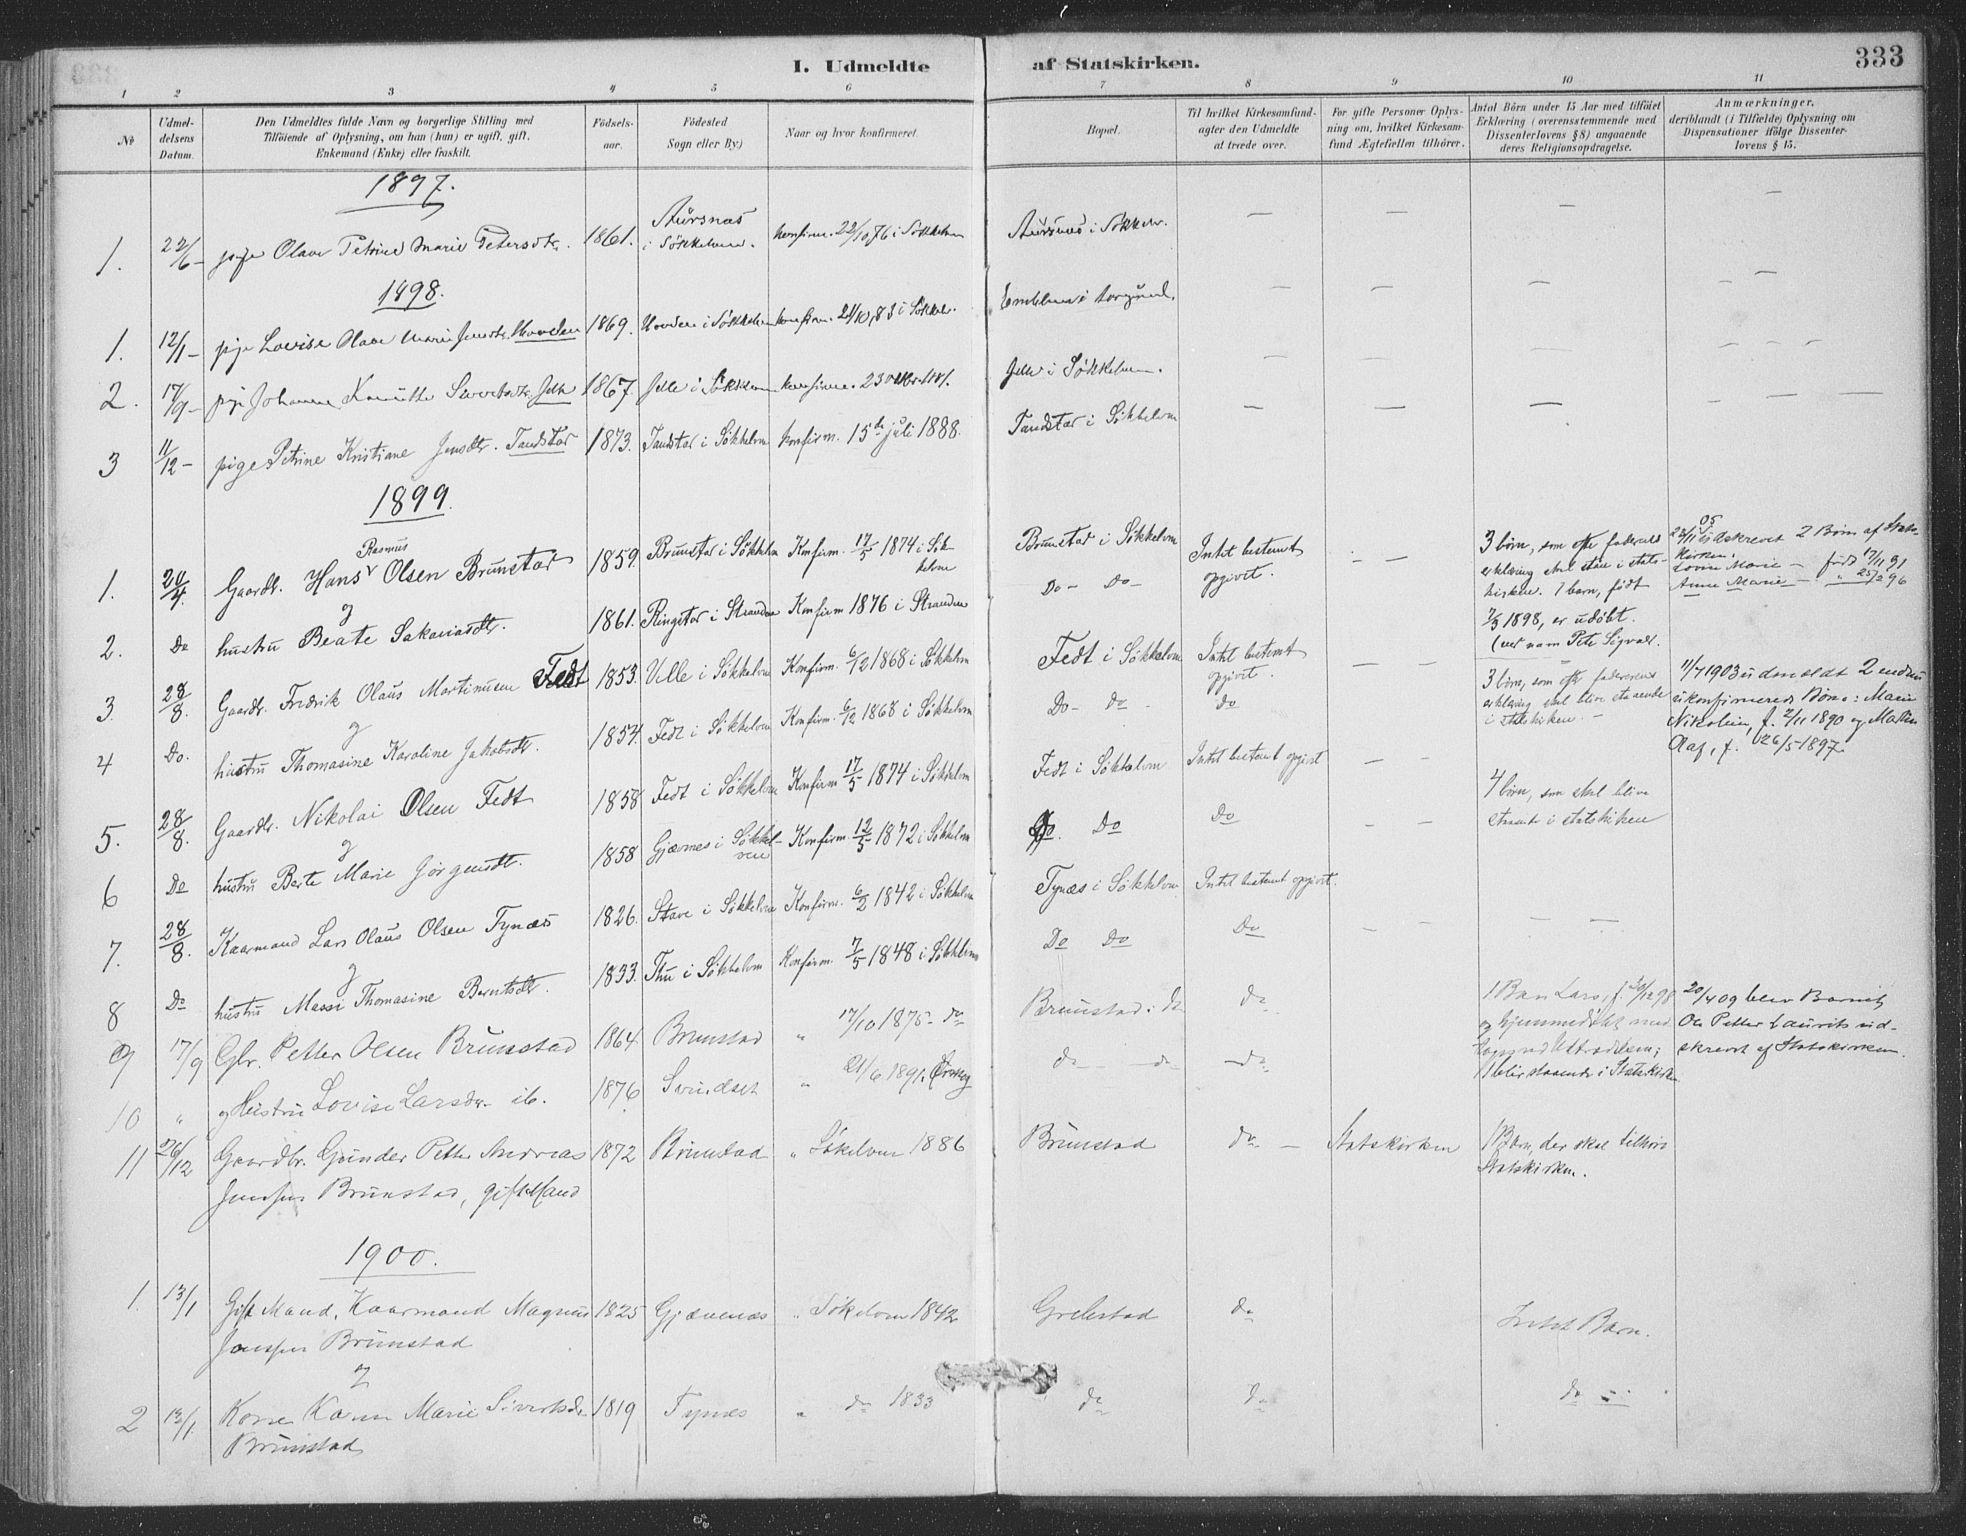 I. Udmeldte af Statskirken. 333
1 2 3 4 5 6 7 8 9 10 11
No
Udmel-
delsens
Datum.
Den Udmeldtes fulde Navn og borgerlige Stilling med
Tilføiende af Oplysning, om han (hun) er ugift, gift,
Enkemand (Enke) eller fraskilt.
Födsels-
aar.
Födested
Sogn eller By.)
Naar og hvor konfirmeret.
Bopæl.
Til hvilket Kirkesamfund-
agter den Udmeldte
at træde over.
For gifte Personer Oplys-
ning om, hvilket Kirkesam-
fund Ægtefællen tilhörer.
Antal Börn under 15 Aar med tilföiet
Erklæring (overensstemmende med
Dissenterlovens § 8) angaaende
deres Religionsopdragelse.
Anmærkninger.
deriblandt (i Tilfælde) Oplysning om
Dispensationer ifölge Dissenter-
lovens § 15.
1897.
1. 22/6 – pige Olave Petrine Marie Petersdtr. 1861. Aursnas i Søkkelven. konfirm. 22/10,76 i Søkkelven Aursnas i Søkkelv. — — — —
1898.
1. 12/1 – pige Lovise Olave Marie Jensdtr. Hovden 1869. Hovden i Søkkelven konfirm. 21/10,83 i Søkkelv. Emblem i Borgund. — — — —
2. 17/9 – pige Johanne Knutte Sivertsdtr. Jelle 1867. Jelle i Søkkelven konfirm. 23 1881. Jelle i Søkkelven. — — — — —
3 11/12 – pige Petrine Kristiane Jensdtr. Tandstad 1873. Tandstad i Søkkelven konfirm. 15de juli 1888. Tandstad i Søkkelven — — — — — —
1899.
Rasmus
1. 20/4 Gaardbr. Hans Olsen Brunstad 1859. Brunstad i Søkkelven Konfirm. 17/5 1874 i Søk-
kelven
Brunstad i Søkkelven Intet bestemt
opgivet. — —
3 börn, som efter faderens
erklæring skal staa i stats-
kirken. 1 barn, født
7/3 1898, er udøbt.
(ved navn Peter Sigvald.
22/11 05 udskrevet 2 Börn af Stats-
kirken.
Lovise Marie – född 17/11 91
Anne Marie – " 25/2 96
og
2. Do hustru Beate Sakariasdtr. 1861. Ringstad i Stranden Konfirm 1876 i Stranden Do – Do –
3. 28/8. Gaardbr. Fredrik Olaus Martinusen Fedt 1853. Velle i Søkkelven Konfirm. 6/12 1868 i Søkkelven Fedt i Søkkelven Intet bestemt
opgivit. — —
3 börn, som efter faderens
erklæring skal blive staaende
i statskirken. –
11/4 1903 udmeldt 2 endnu
ukonfirmerede Börn: Marie
Nikoline, f. 2/11 1890 og Martin
Olaf, f. 26/5 1897.
og
4 Do. hustru Thomasine Karoline Jakobsdtr. 1854. Fedt i Søkkelven Konfirm. 6/12 1868 i Søkkelven Do – do – do
5. 28/8. Gaardbr. Nikolai Olsen Fedt 1858 Fedt i Søkkelven Konfirm 17/5 1874 i Søkkelven Fedt i Søkkelven Intet bestemt opgivt — —
4 börn, som skal blive
staaende i statskirken
og
6 Do hustru Berte Marie Jörgensdtr. 1858 Gjævnes i Søkkel-
ven
Konfirm. 12/5 1872 i Søkkelven Do. Do Do — —
7. 28/8. Kaarmand Lars Olaus Olsen Tynæs 1826. Stave i Søkkelven Konfirm. 6/2 1842 i Søkkelven Tynæs i Søkkelven Intet bestemt opgivit.
og
8 Do hustru Massi Thomasine Berntsdtr. 1833. Thu i Søkkelven Konfirm. 7/5 1848 i Søkkelven Do Do Do — — — —
9 17/9 Gbr. Petter Olsen Brunstad 1864. Brunstad " 17/10 1875 – do Brunstad i do do
1 Barn Lars, f. /12 98
og hjemmedøbt
1 blir staaende i Statskirken
20/4 09 blev Barnet
Ole Petter Laurits ud-
skrevet af Statskirken.
10 " og Hustru Lovise Larsdtr. ib. 1876 Svindset " 21/6 1891, Ørskog do – do – do
11 26/12 Gaardbr. Gunder Petter Andreas
Jenssen Brunstad, gift Mand
1872 Brunstad " Søkelven 1886 Brunstad do – Statskirken
1 Barn, der skal tilhøre
Statskirken.
1900.
1. 13/1 Gift Mand, Kaarmand Magnus
Jenssen Brunstad
1825 Gjævenæs " Søkelven 1842 Grebstad do Intet Barn.
og
2 13/1 Kone Karen Marie Sivertsdr.
Brunstad
1819 Tynæs " do 1833 do do do –